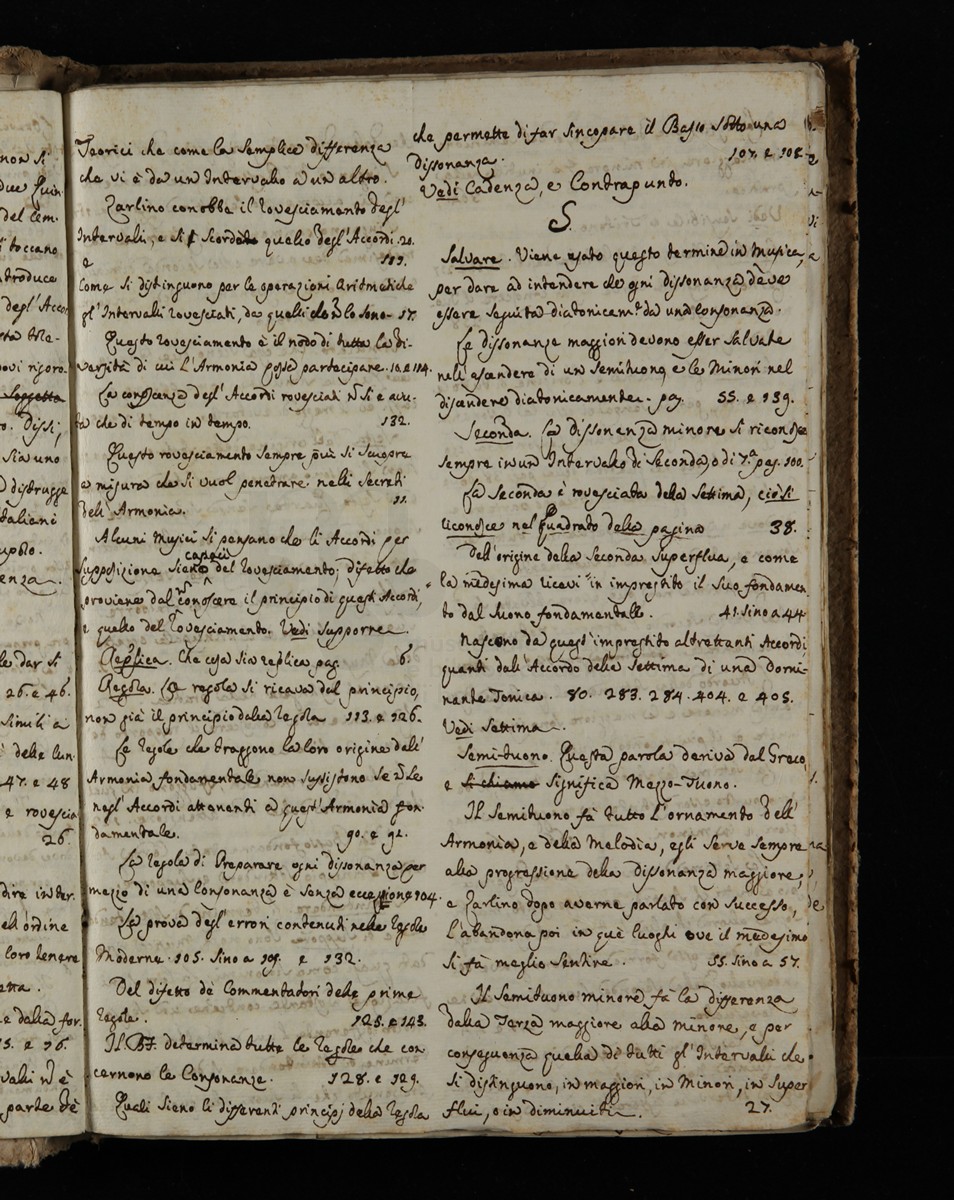 Teorici che come la semplice differenza
che vi è da un Intervallo a un altro.
Zarlino conobbe il rovesciamento degl'
Intervalli, e si è scordato quello degl'Accordi. 20.
e 119.
Come si distinguono per le operazioni Aritmetiche
gl'Intervalli rovesciati, da quelli che nò lo sono. 17.
Questo rovesciamento è il nodo di tutta la di-
versità di cui l'Armonia possa partecipare. 10. e 114.
La conoscenza degl'Accordi rovesciati nò si è avu-
ta che di tempo in tempo. 132.
Questo rovesciamento sempre più si scuopre
a misura che si vuol penetrare nelli secreti
dell'Armonia. 11.
Alcuni Musici si pensano che li Accordi per
supposizione sieno capaci del rovesciamento; difetto che
proviene dal nò conoscere il principio di questi Accordi,
e quello del rovesciamento. Vedi Supporre.
Replica. Che cosa sia replica pag. 6.
Regola. La regola si ricava dal principio,
non già il principio dalla regola 113. e 126.
Le regole che traggono la loro origine dall'
Armonia fondamentale non sussistono se nò le
negl'Accordi attenenti a quest'Armonia fon-
damentale. 90. e 92.
La regola di Preparare ogni dissonanza per
mezzo di una Consonanza è senza eccezione 104.
La prova degl'errori contenuti nelle regole
Moderne. 105. sino a 109. e 132.
Del difetto de Commentatori delle prime
regole. 125. e 143.
Il determina tutte le regole che con
cernono le Consonanze. 128. e 129.
Quali sieno li differenti principj della regola
che permette di far sincopare il Basso sotto una
dissonanza. 107. e 108.
Vedi Cadenza, e Contrapunto.
S.
Salvare. Viene usato questo termine in Musica,
per dare ad intendere che ogni dissonanza deve
essere seguita diatonicam.te da una Consonanza.
Le dissonanze maggiori devono esser salvate
nell'ascendere di un semituono, e le Minori nel
discendere diatonicamente. pag. 55. e 139.
Seconda. La Dissonanza minore si riconosce
sempre in un Intervallo di Seconda, o di 7.a pag. 100.
La seconda è rovesciata della settima, ciò si
riconosce nel quadrato della pagina 38.
Dell'origine della Seconda superflua, e come
la medesima ricavi in imprestito il suo fondamen
to dal suono fondamentale. 41. sino a 44
Nascono da quest'imprestito altrettanti Accordi
quanti dall'Accordo della Settima di una Domi-
nante Tonica. 80. 283. 284. 404. e 405.
Vedi Settima.
Semi-tuono. Questa parola deriva dal Greco,
e si chiama significa Mezzo-Tuono.
Il Semituono fà tutto l'ornamento dell'
Armonia, e della Melodia, egli serve sempre
alla progressione della dissonanza maggiore;
e Zarlino dopo averne parlato con successo,
l'abandona poi in què luoghi ove il medesimo
si fà meglio sentire. 55. sino a 57.
Il Semituono minore fà la differenza
dalla Terza maggiore alla minore, e per
conseguenza quella di tutti gl'Intervalli che
si distinguono, in maggiori, in Minori, in super
flui, o in diminuiti. 27.